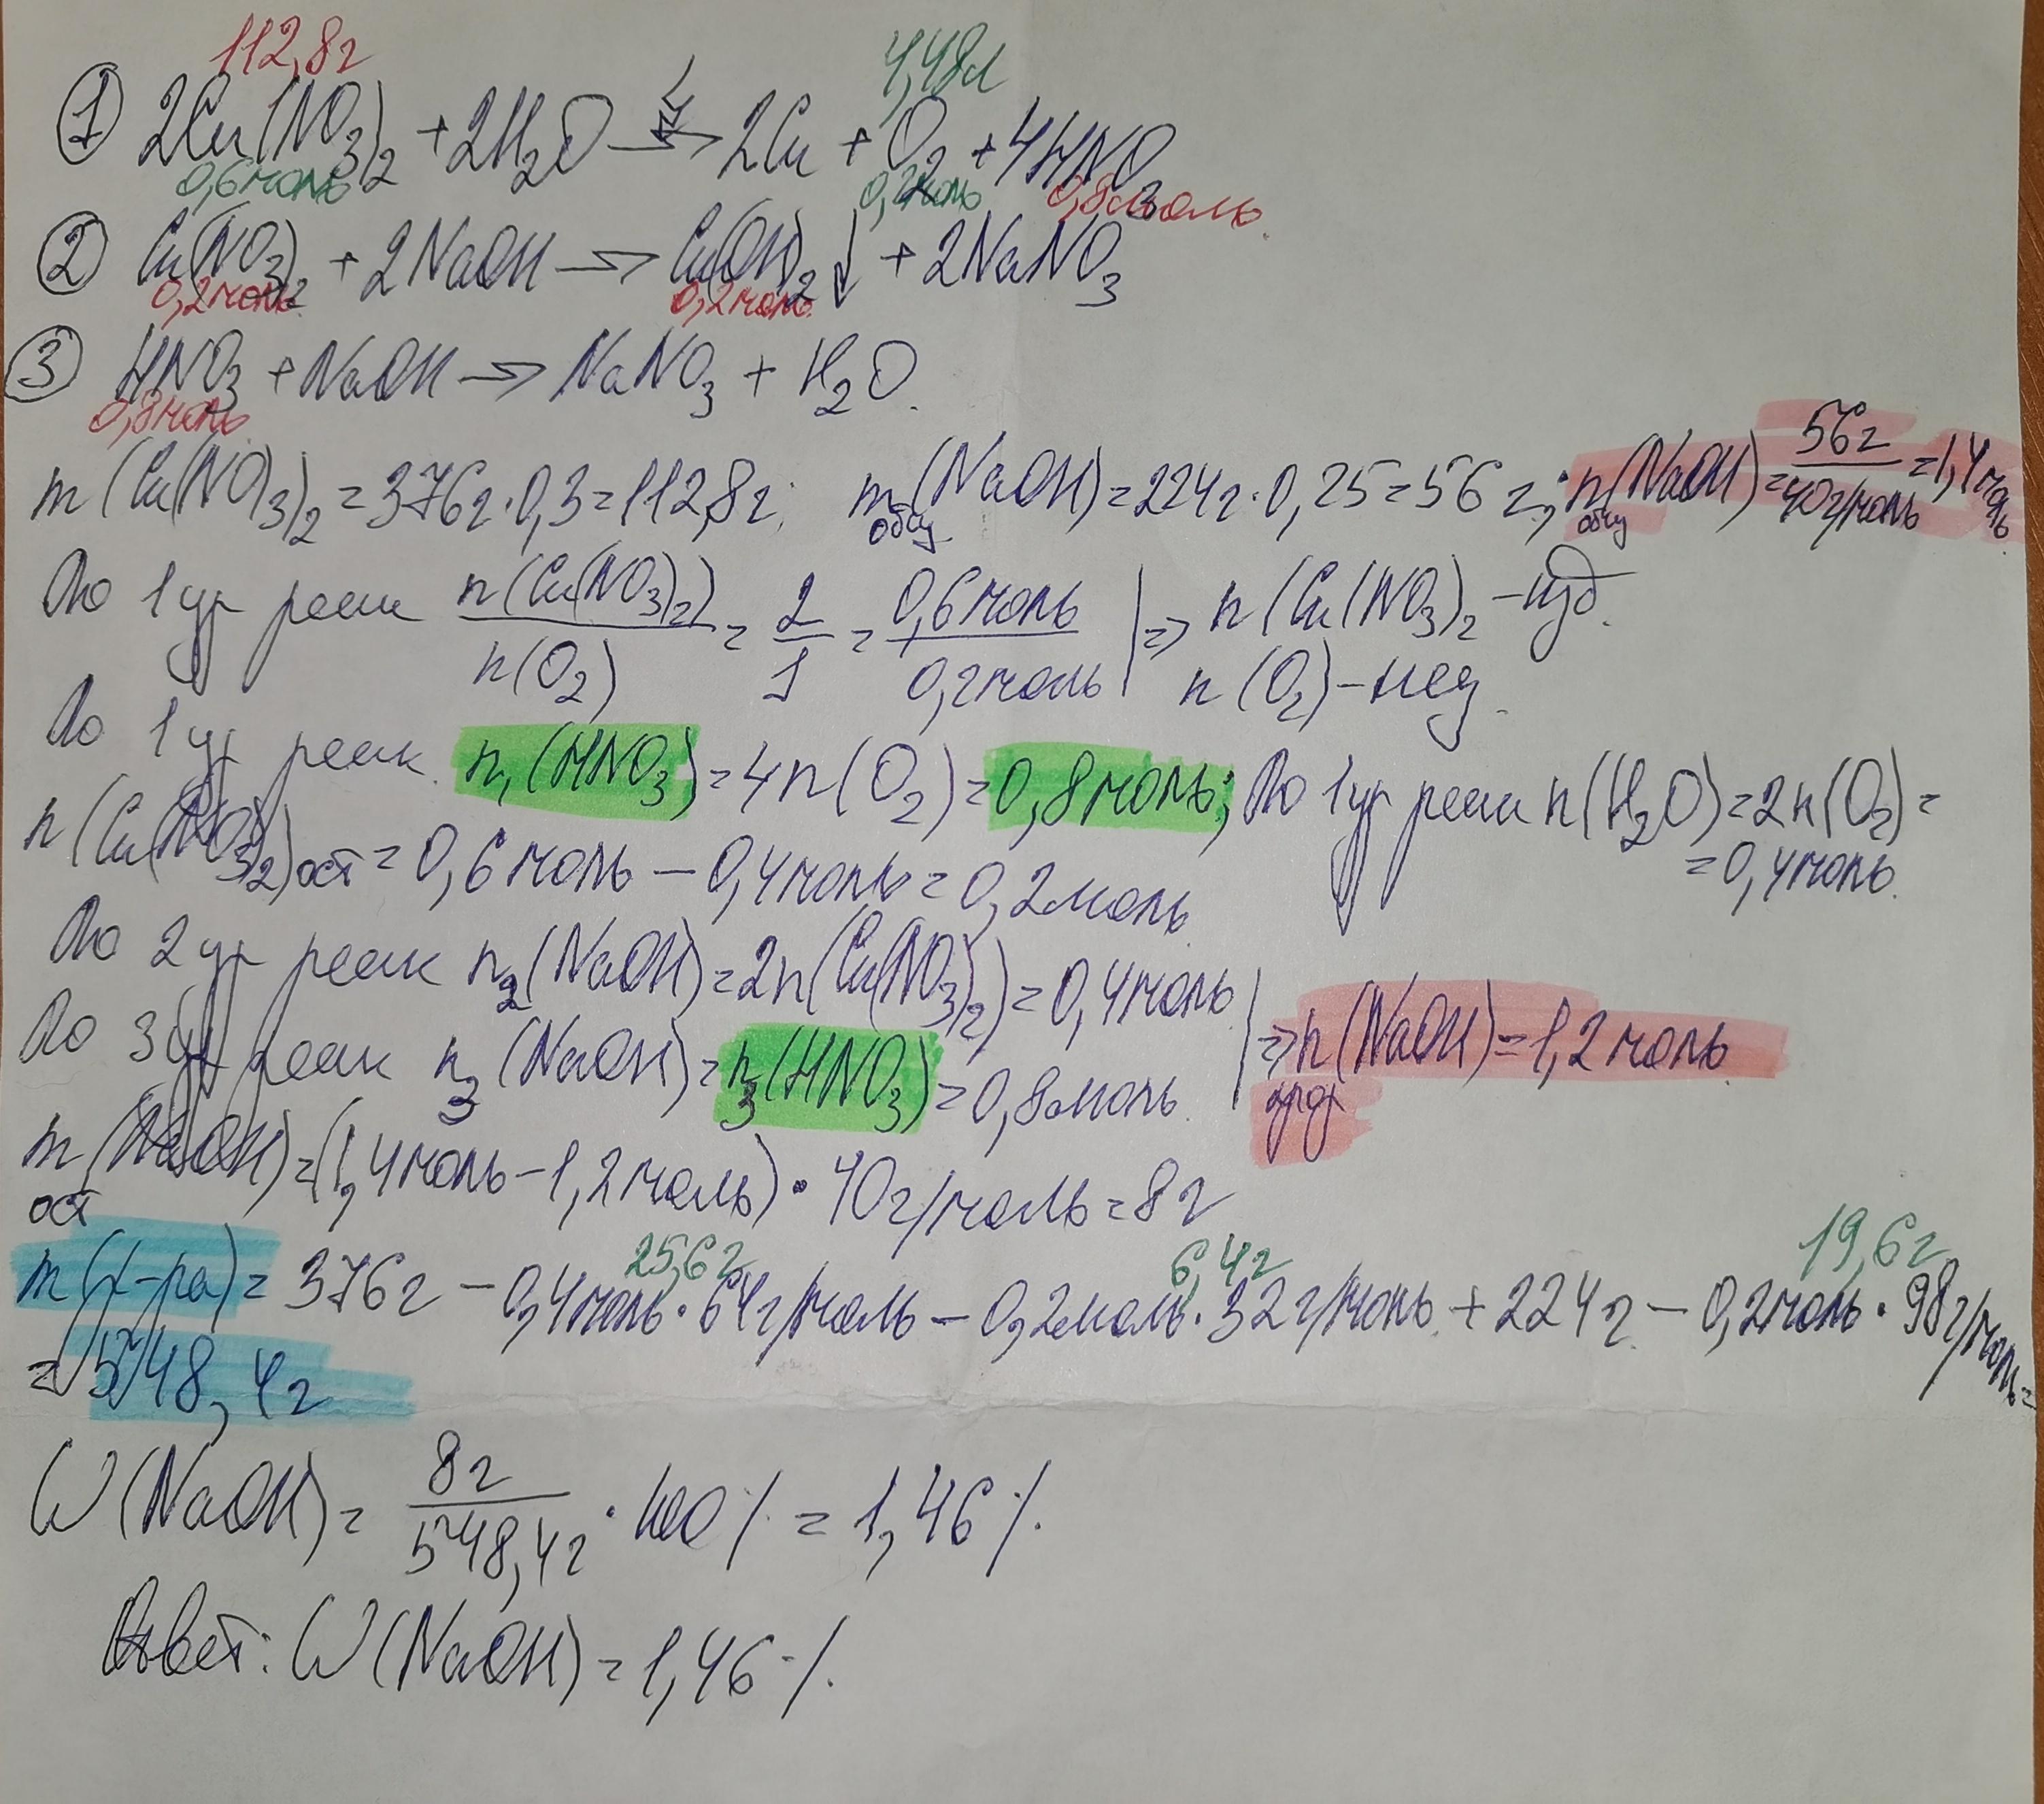 112,8г 4,48л
① 2Cu(NO3)2 + 2H2O → 2Cu + O2 + 4HNO3
0,6моль 0,2моль 0,8моль.
② Cu(NO3)2 + 2NaOH → Cu(OH)2↓ + 2NaNO3
0,2моль 0,2моль
③ HNO3 + NaOH → NaNO3 + H2O.
0,8моль
m(Cu(NO3)2 = 376г·0,3 = 112,8г; m общ (NaOH) = 224г·0,25 = 56г; n общ (NaOH) = 56г/40г/моль = 1,4моль
По 1 ур реак n(Cu(NO3)2)/n(O2) = 2/1 = 0,6моль/0,2моль | ⇒ n(Cu(NO3)2 – изб. n(O2) – нед.
По 1 ур реак. n1(HNO3) = 4n(O2) = 0,8моль; По 1 ур реак n(H2O) = 2n(O2) = = 0,4моль.
n(Cu(NO3)2)ост = 0,6моль – 0,4моль = 0,2моль
По 2 ур реак n2(NaOH) = 2n(Cu(NO3)2) = 0,4моль
По 3 ур реак n3(NaOH) = n3(HNO3) = 0,8моль. | ⇒ n (NaOH) = 1,2моль
m ост (NaOH) = (1,4моль – 1,2моль)·40г/моль = 8г
25,6г 6,4г 19,6г
m(р-ра) = 376г – 0,4моль·64г/моль – 0,2моль·32г/моль + 224г – 0,2моль·98г/моль =
= 548,4г
W(NaOH) = 8г/548,4г · 100% = 1,46%.
Ответ: W(NaOH) = 1,46%.